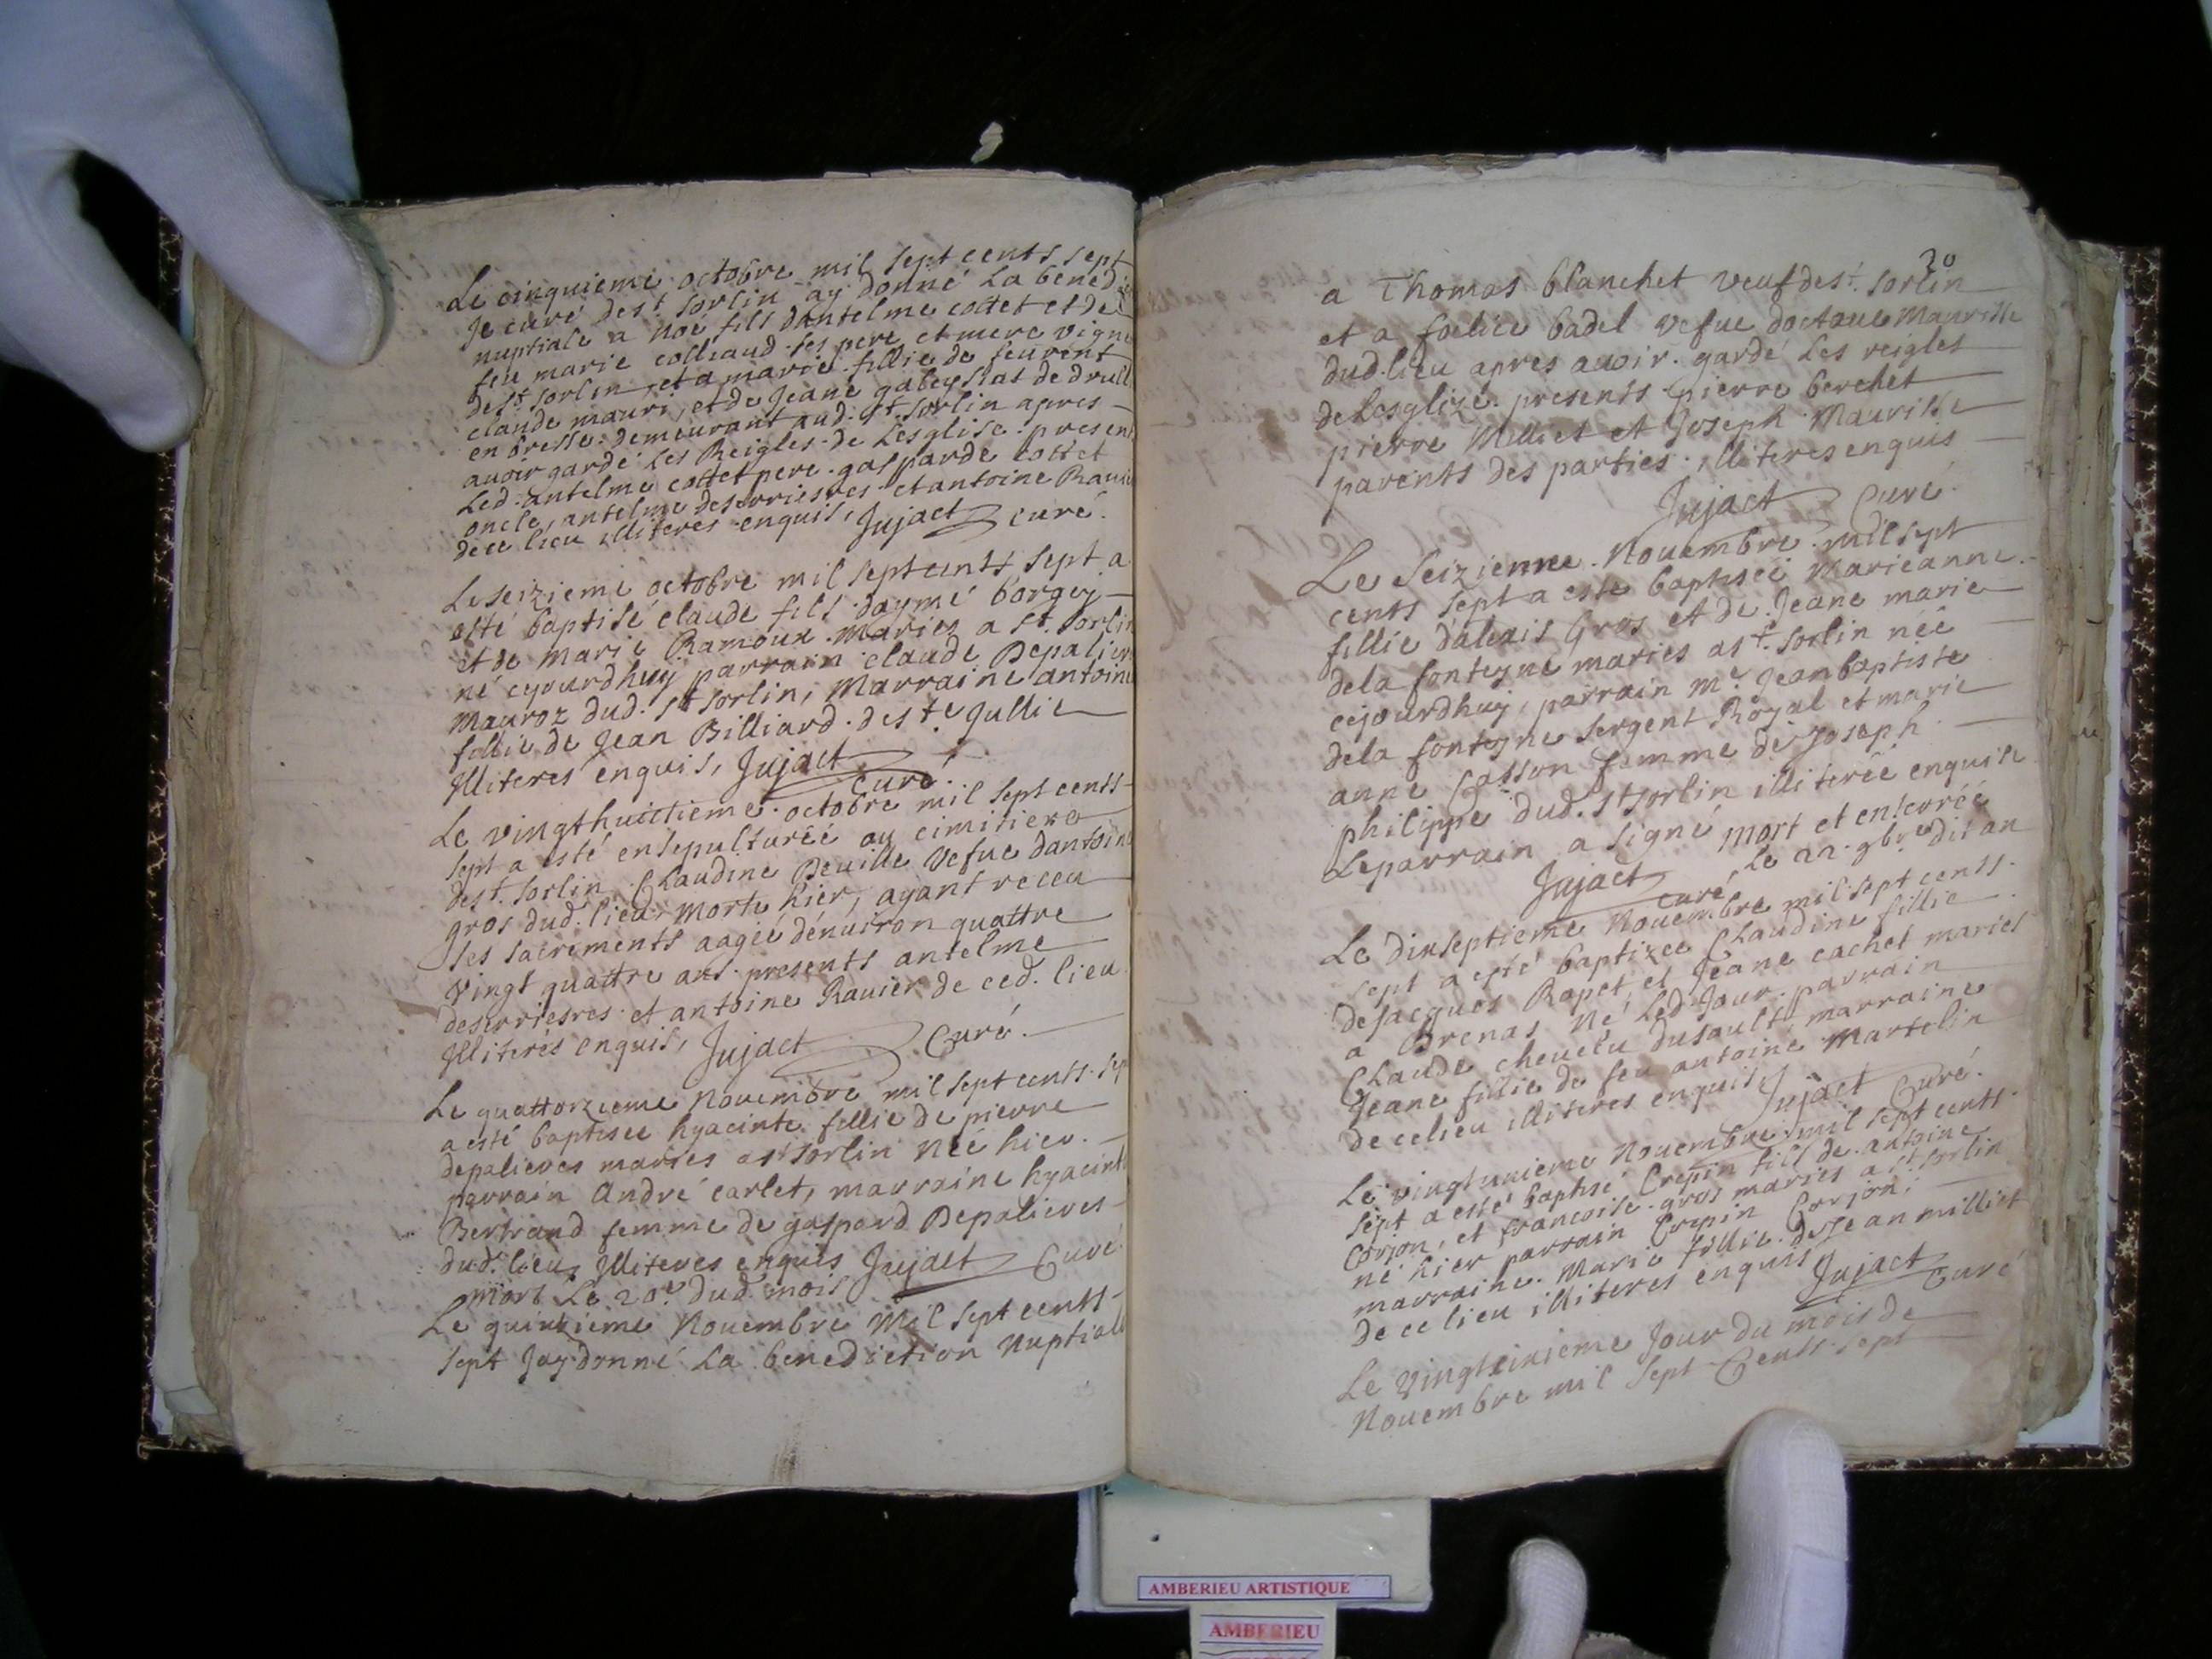 Le cinquieme octobre mil sept cents sept
Je curé de st. sorlin ay donné La bened
nuptiale a Noé fils dantelme cottet et de
feu marie colliaud ses pere et mere vigne
de st. sorlin, et a marie fillie de feurent
claude mauri, et de Jeane gabeyslat de druil
en bresse demeurant aud. st. sorlin apres
avoir gardé Les Reigles de Lesglise present
Led. antelme cottet pere gasparde cottet
oncle, antelme deserriesres et antoine Rauie
de ce lieu illiteres enquis, Jujact curé.
Le seizieme octobre mil sept cents sept a
esté baptisé claude fils daymé borgey
et de marie Ramoux maries a st. sorlin
né cejourdhuy parrain claude Depalier
mauroz dud. st sorlin, Marraine antoine
fillie de Jean Billiard de ste Jullie
Illiteres enquis, Jujact
curé.
Le vingthuittieme octobre mil sept cents
sept a esté ensepulturéé au cimitiere
de st. sorlin Claudine Deville vefue dantoine
gros dud. lieu morte hier, ayant receu
ses sacrements aagéé denuiron quattre
vingt quattre ans presents antelme
deserriesres et antoine Rauier de ced. lieu
Illiterés enquis, Jujact Curé.
Le quattorzieme Nouembre mil sept cents sep
a esté baptisee hyacinte fillie de pierre
depalieres maries a st sorlin Néé hier.
parrain André carlet, marraine hyacint
Bertrand femme de gaspard Depalieres
dud. lieu, Illiteres enquis Jujact Curé
mort Le 20e dud. mois
Le quinzieme Nouembre Mil sept cents
sept Jay donné La benediction Nuptiall
20
a Thomas blanchet veuf de st. sorlin
et a foelice badel vefue doctaue Maurisse
dud. lieu apres auoir gardé Les reigles
de Lesglize presents pierre berchet
pierre Milliet et Joseph Maurisse
parents des parties illiteres enquis
Jujact Curé.
Le Seizienme Nouembre mil sept
cents sept a este baptiseé Marieanne
fillie dalexis Gros et de Jeane marie
de la fonteyne maries a st. sorlin néé
cejourdhuy, parrain me. Jeanbaptiste
de la fonteyne sergent Royal et marie
anne Casson femme de Joseph
philippe dud. st sorlin illiteréé enquise
Leparrain a signé mort et enterréé
Jujact curé, Le 22. 9bre dit an
Le dixseptieme Nouembre mil sept cents
sept a esté baptizee Claudine fillie
de Jacques Rapet, et Jeane cachet maries
a Brenas Né Led. Jour. parrain
Claude cheuelu dusault, marraine
Jeane fillie de feu antoine Martelin
de ce lieu illiteres enquis, Jujact Curé.
Le vingtunieme Nouembre mil sept cents
sept a esté baptisé Crepin fils de antoine
Corjon, et francoise gros maries a st. sorlin
né hier parrain Crepin Corjon,
marraine Marie fillie de Jean milliet
de ce lieu illiteres enquis Jujact
Curé
Le vingtsixieme Jour du mois de
Nouembre mil sept Cents sept
AMBERIEU ARTISTIQUE
AMBERIEU